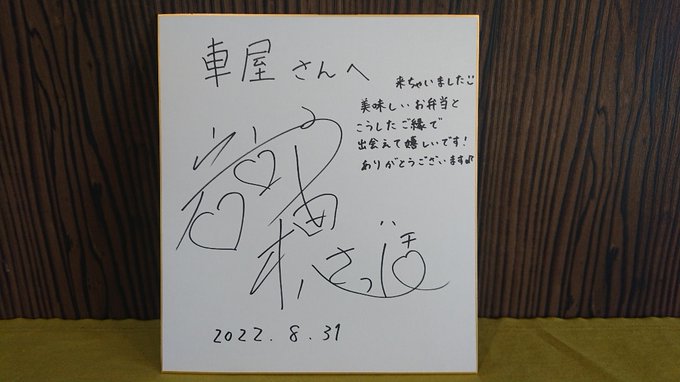 車屋さんへ
来ちゃいました
美味しいお弁当と
こうしたご縁で
出会えて嬉しいです!
ありがとうございます♪
2022.8.31